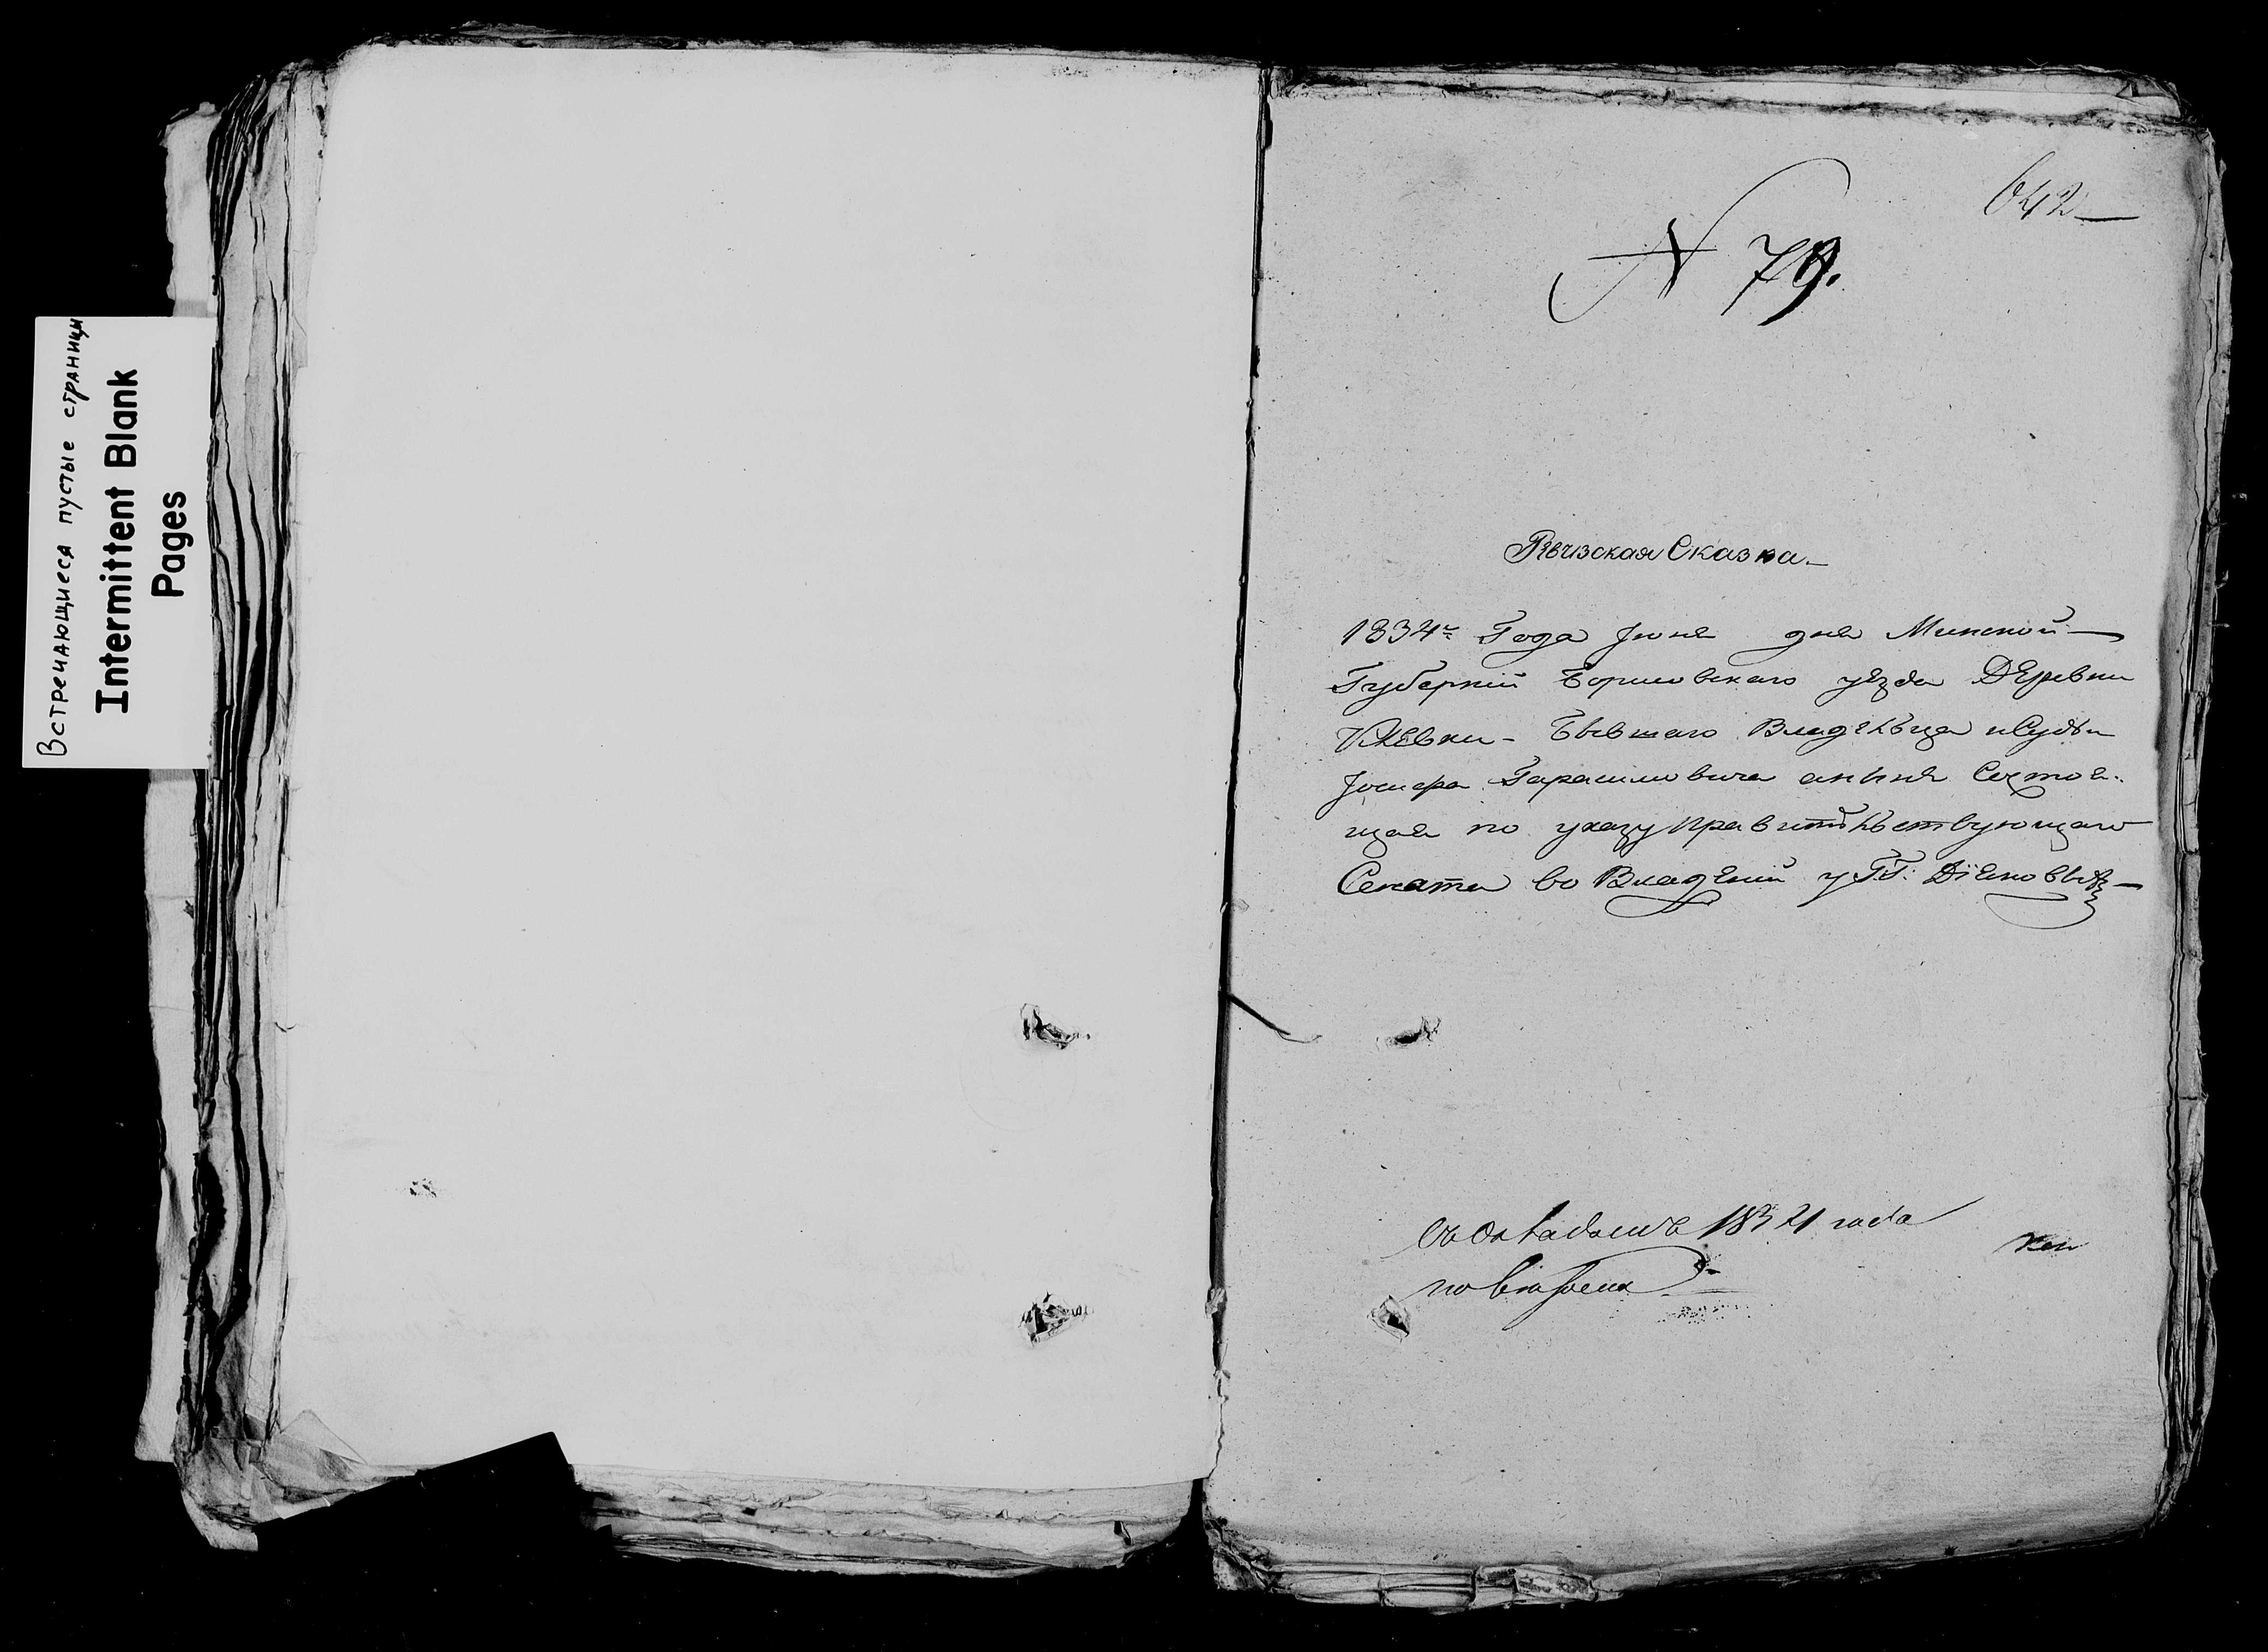 Встречающиеся пустые страницы
Intermittent Blank
Pages
642
N 79.
Ревизская Сказка.
1834го Года Июня дня Минской
Губерній Борисовскаго уезда Деревни
бывшаго Владельца
Іосифа Гарасимовича а ныне Состоя-
щая по указу Правительствующаго
Сената во Владеній у ГГ.
1834 года